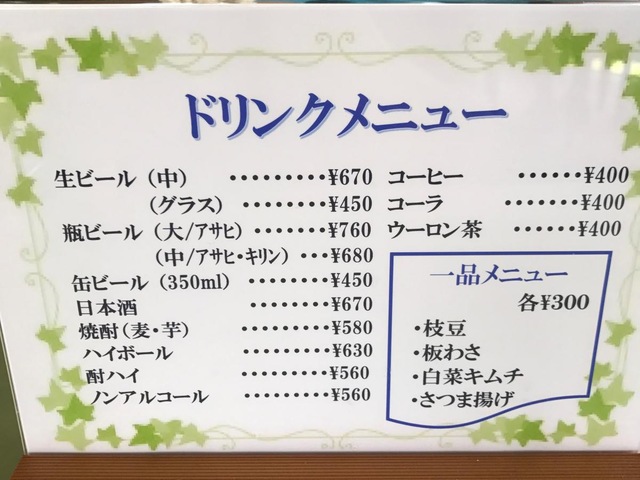 ドリンクメニュー
生ビール（中） ･････････¥670
（グラス） ････････¥450
瓶ビール（大/アサヒ） ･･････¥760
（中/アサヒ・キリン） ･･･¥680
缶ビール（350ml） ･･･････¥450
日本酒 ････････¥670
焼酎（麦・芋） ･････････¥580
ハイボール ･････････¥630
酎ハイ ･････････¥560
ノンアルコール ･･･････¥560
コーヒー ･･････¥400
コーラ ･･･････¥400
ウーロン茶 ･･････¥400
一品メニュー
各¥300
・枝豆
・板わさ
・白菜キムチ
・さつま揚げ